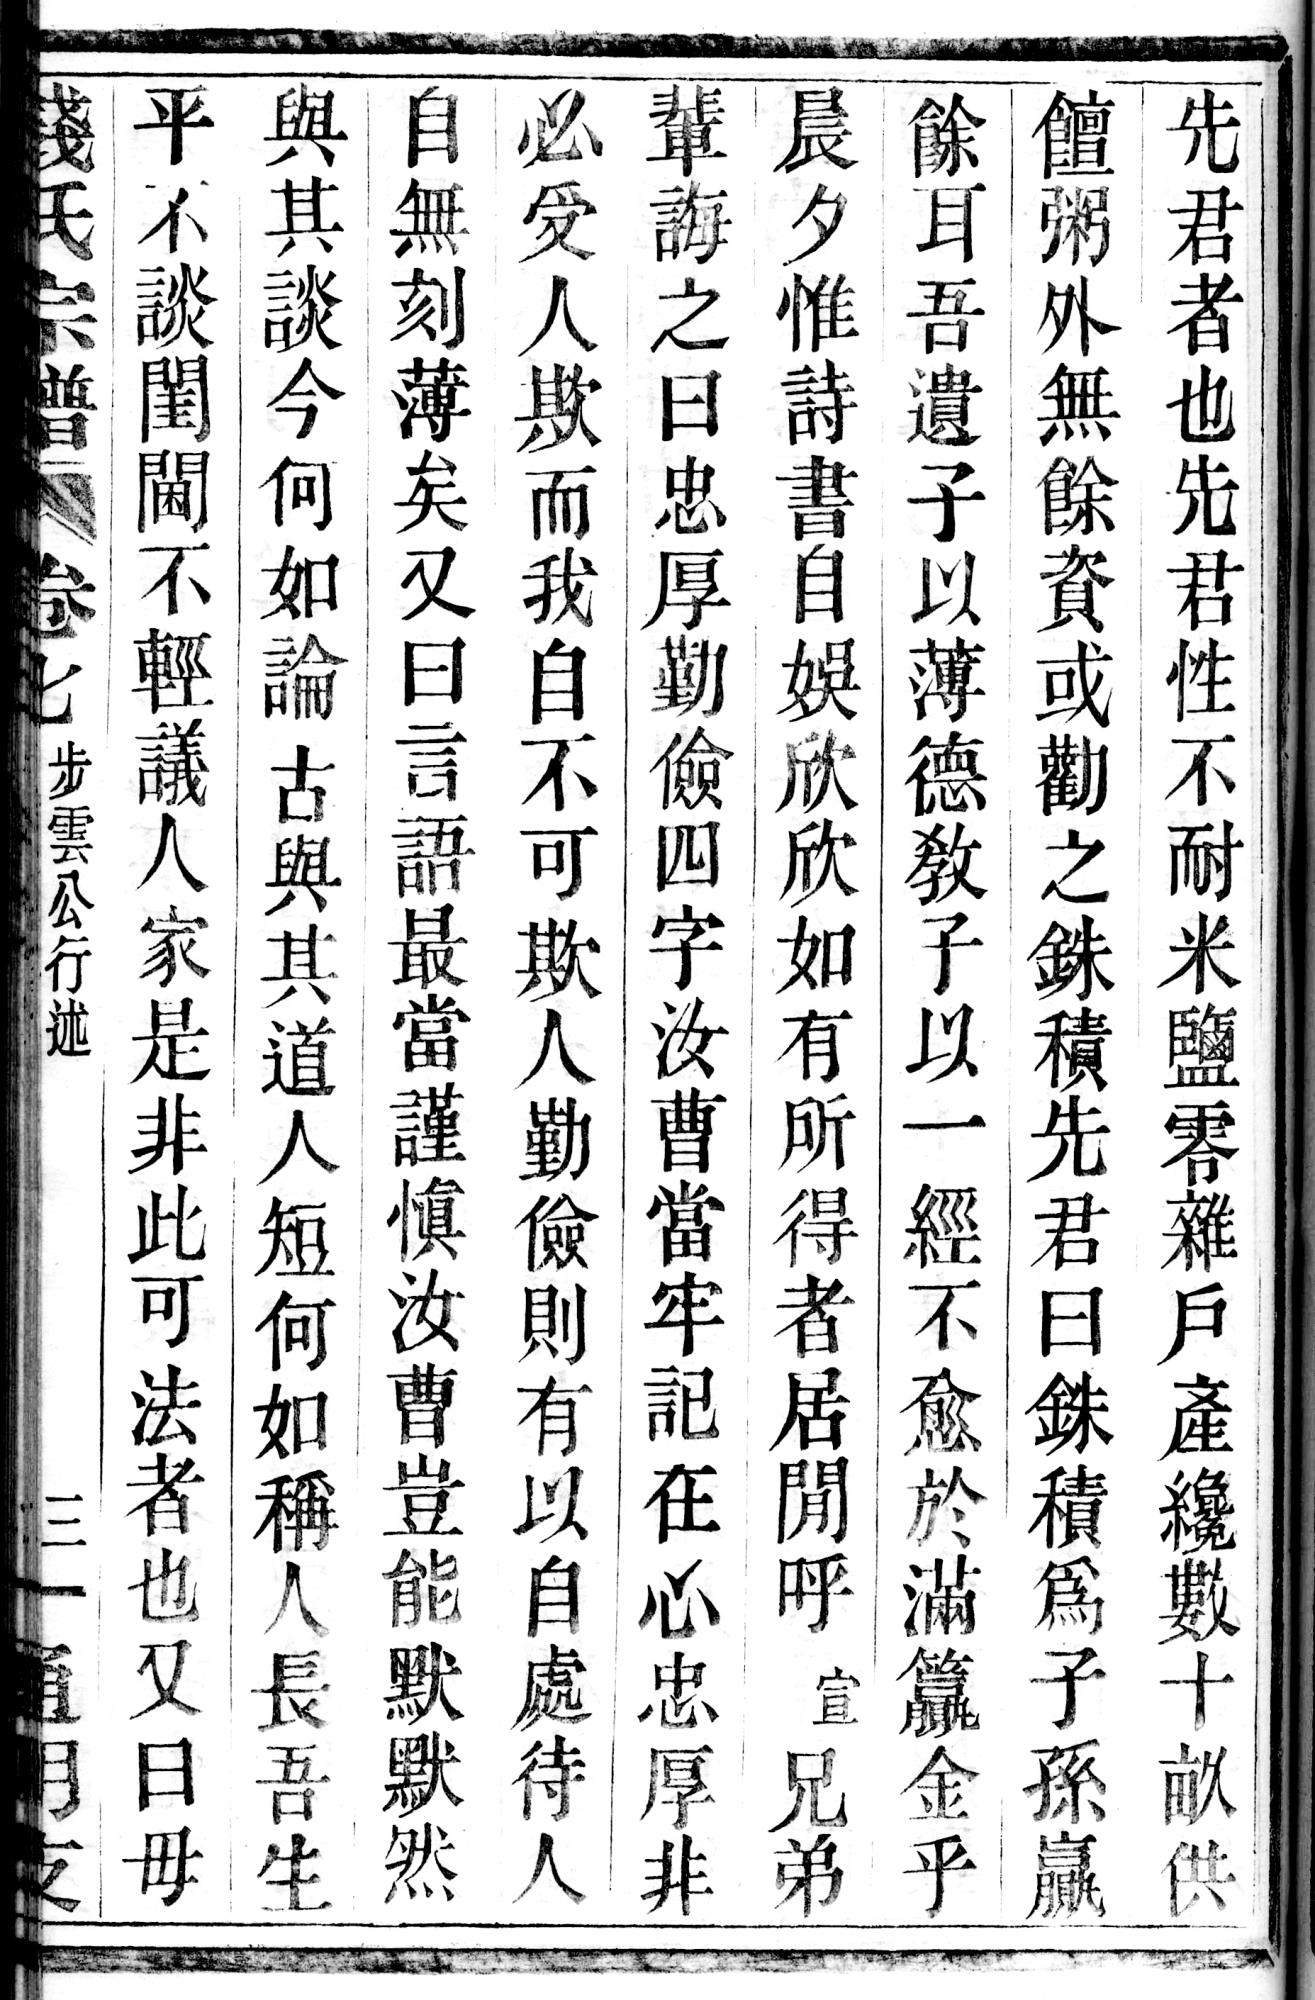 先君者也先君性不耐米鹽零雜戶產纔數十畝供
饘粥外無餘資或勸之銖積先君曰銖積爲子孫贏
餘耳吾遺子以薄德教子以一經不愈於滿籯金乎
晨夕惟詩書自娛欣欣如有所得者居閒呼宣兄弟
輩誨之曰忠厚勤儉四字汝曹當牢記在心忠厚非
必受人欺而我自不可欺人勤儉則有以自處待人
自無刻薄矣又曰言語最當謹慎汝曹豈能默默然
與其談今何如論古與其道人短何如稱人長吾生
平不談閨閫不輕議人家是非此可法者也又曰毋
錢氏宗譜 卷七 步雲公行述 三一 通明支